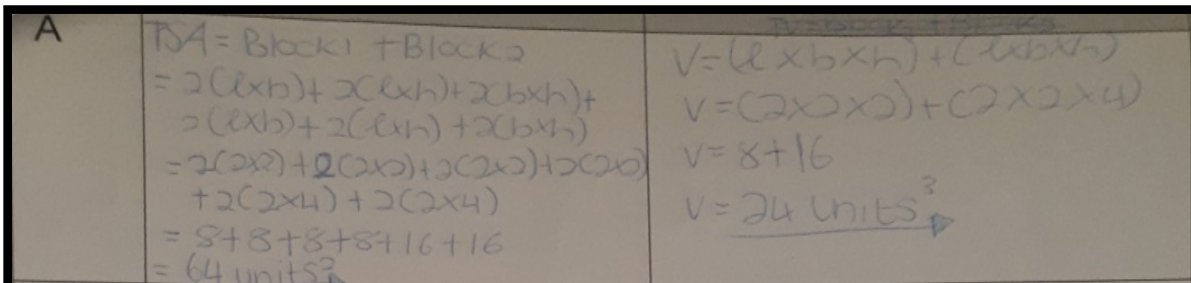 A
TSA = Block1 + Block2
= 2(l×b) + 2(l×h) + 2(b×h) +
2(l×b) + 2(l×h) + 2(b×h)
= 2(2×2) + 2(2×2) + 2(2×2) + 2(2×2)
+ 2(2×4) + 2(2×4)
= 8+8+8+8+16+16
= 64 units²
V = (l×b×h) + (l×b×h)
V = (2×2×2) + (2×2×4)
V = 8+16
V = 24 units³